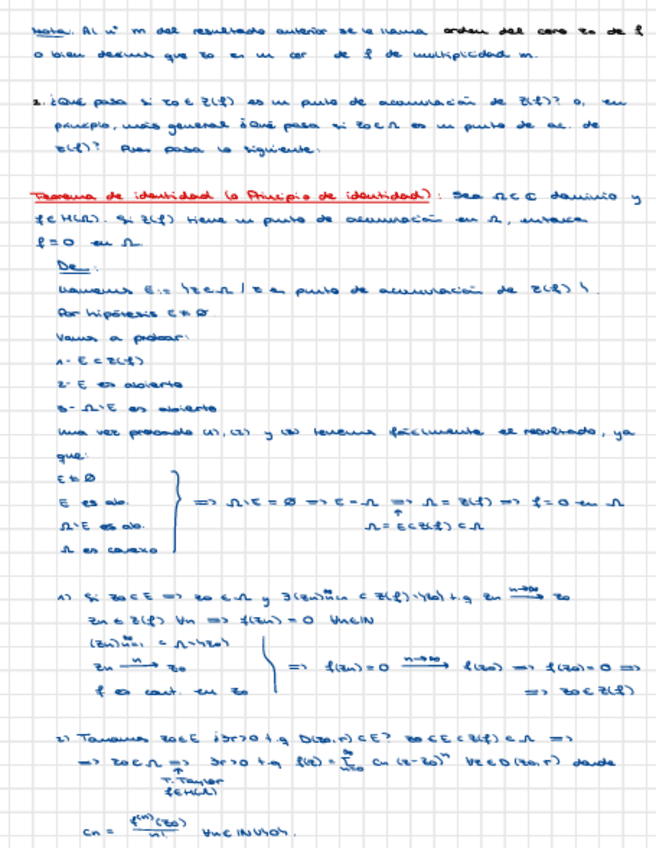 Nota. Al nº m del resultado anterior se le llama orden del cero z0 de f
o bien decimos que z0 es un cer de f de multiplicidad m.
2. ¿Qué pasa si z0 ∈ Z(f) es un punto de acumulación de Z(f)? o, en
principio, más general ¿Qué pasa si z0 ∈ Ω es un punto de ac. de
Z(f)? Pues pasa lo siguiente:
Teorema de identidad (o Principio de identidad): Sea Ω ⊂ ℂ dominio y
f ∈ H(Ω). Si Z(f) tiene un punto de acumulación en Ω, entonces
f = 0 en Ω
De.:
Llamemos E := {z ∈ Ω / z es punto de acumulación de Z(f)}.
Por hipótesis E ≠ ∅
Vamos a probar:
1- E ⊂ Z(f)
2- E es abierto
3- Ω\E es abierto
Una vez probado (1), (2) y (3) tenemos fácilmente el resultado, ya
que:
E ≠ ∅
E es ab. => Ω\E = ∅ => E = Ω => Ω = Z(f) => f = 0 en Ω
Ω\E es ab. ↑ Ω = E ⊂ Z(f) ⊂ Ω
Ω es conexo
1) Si z0 ∈ E => z0 ∈ Ω y ∃(zn)∞n=1 ⊂ Z(f)\{z0} t.q zn n→∞ z0
zn ∈ Z(f) ∀n => f(zn) = 0 ∀n∈ℕ
(zn)∞n=1 ⊂ Ω\{z0}
zn n→ z0 => f(zn) = 0 n→∞ f(z0) => f(z0) = 0 =>
f es cont. en z0 => z0 ∈ Z(f)
2) Tomamos z0 ∈ E ¿∃r>0 t.q D(z0,r) ⊂ E? z0 ∈ E ⊂ Z(f) ⊂ Ω =>
=> z0 ∈ Ω => ∃r>0 t.q f(z) = ∑∞n=0 cn (z-z0)ⁿ ∀z∈D(z0,r) donde
↑
T. Taylor
f∈H(Ω)
cn = f⁽ⁿ⁾(z0)/n! ∀n∈ℕ∪{0}.